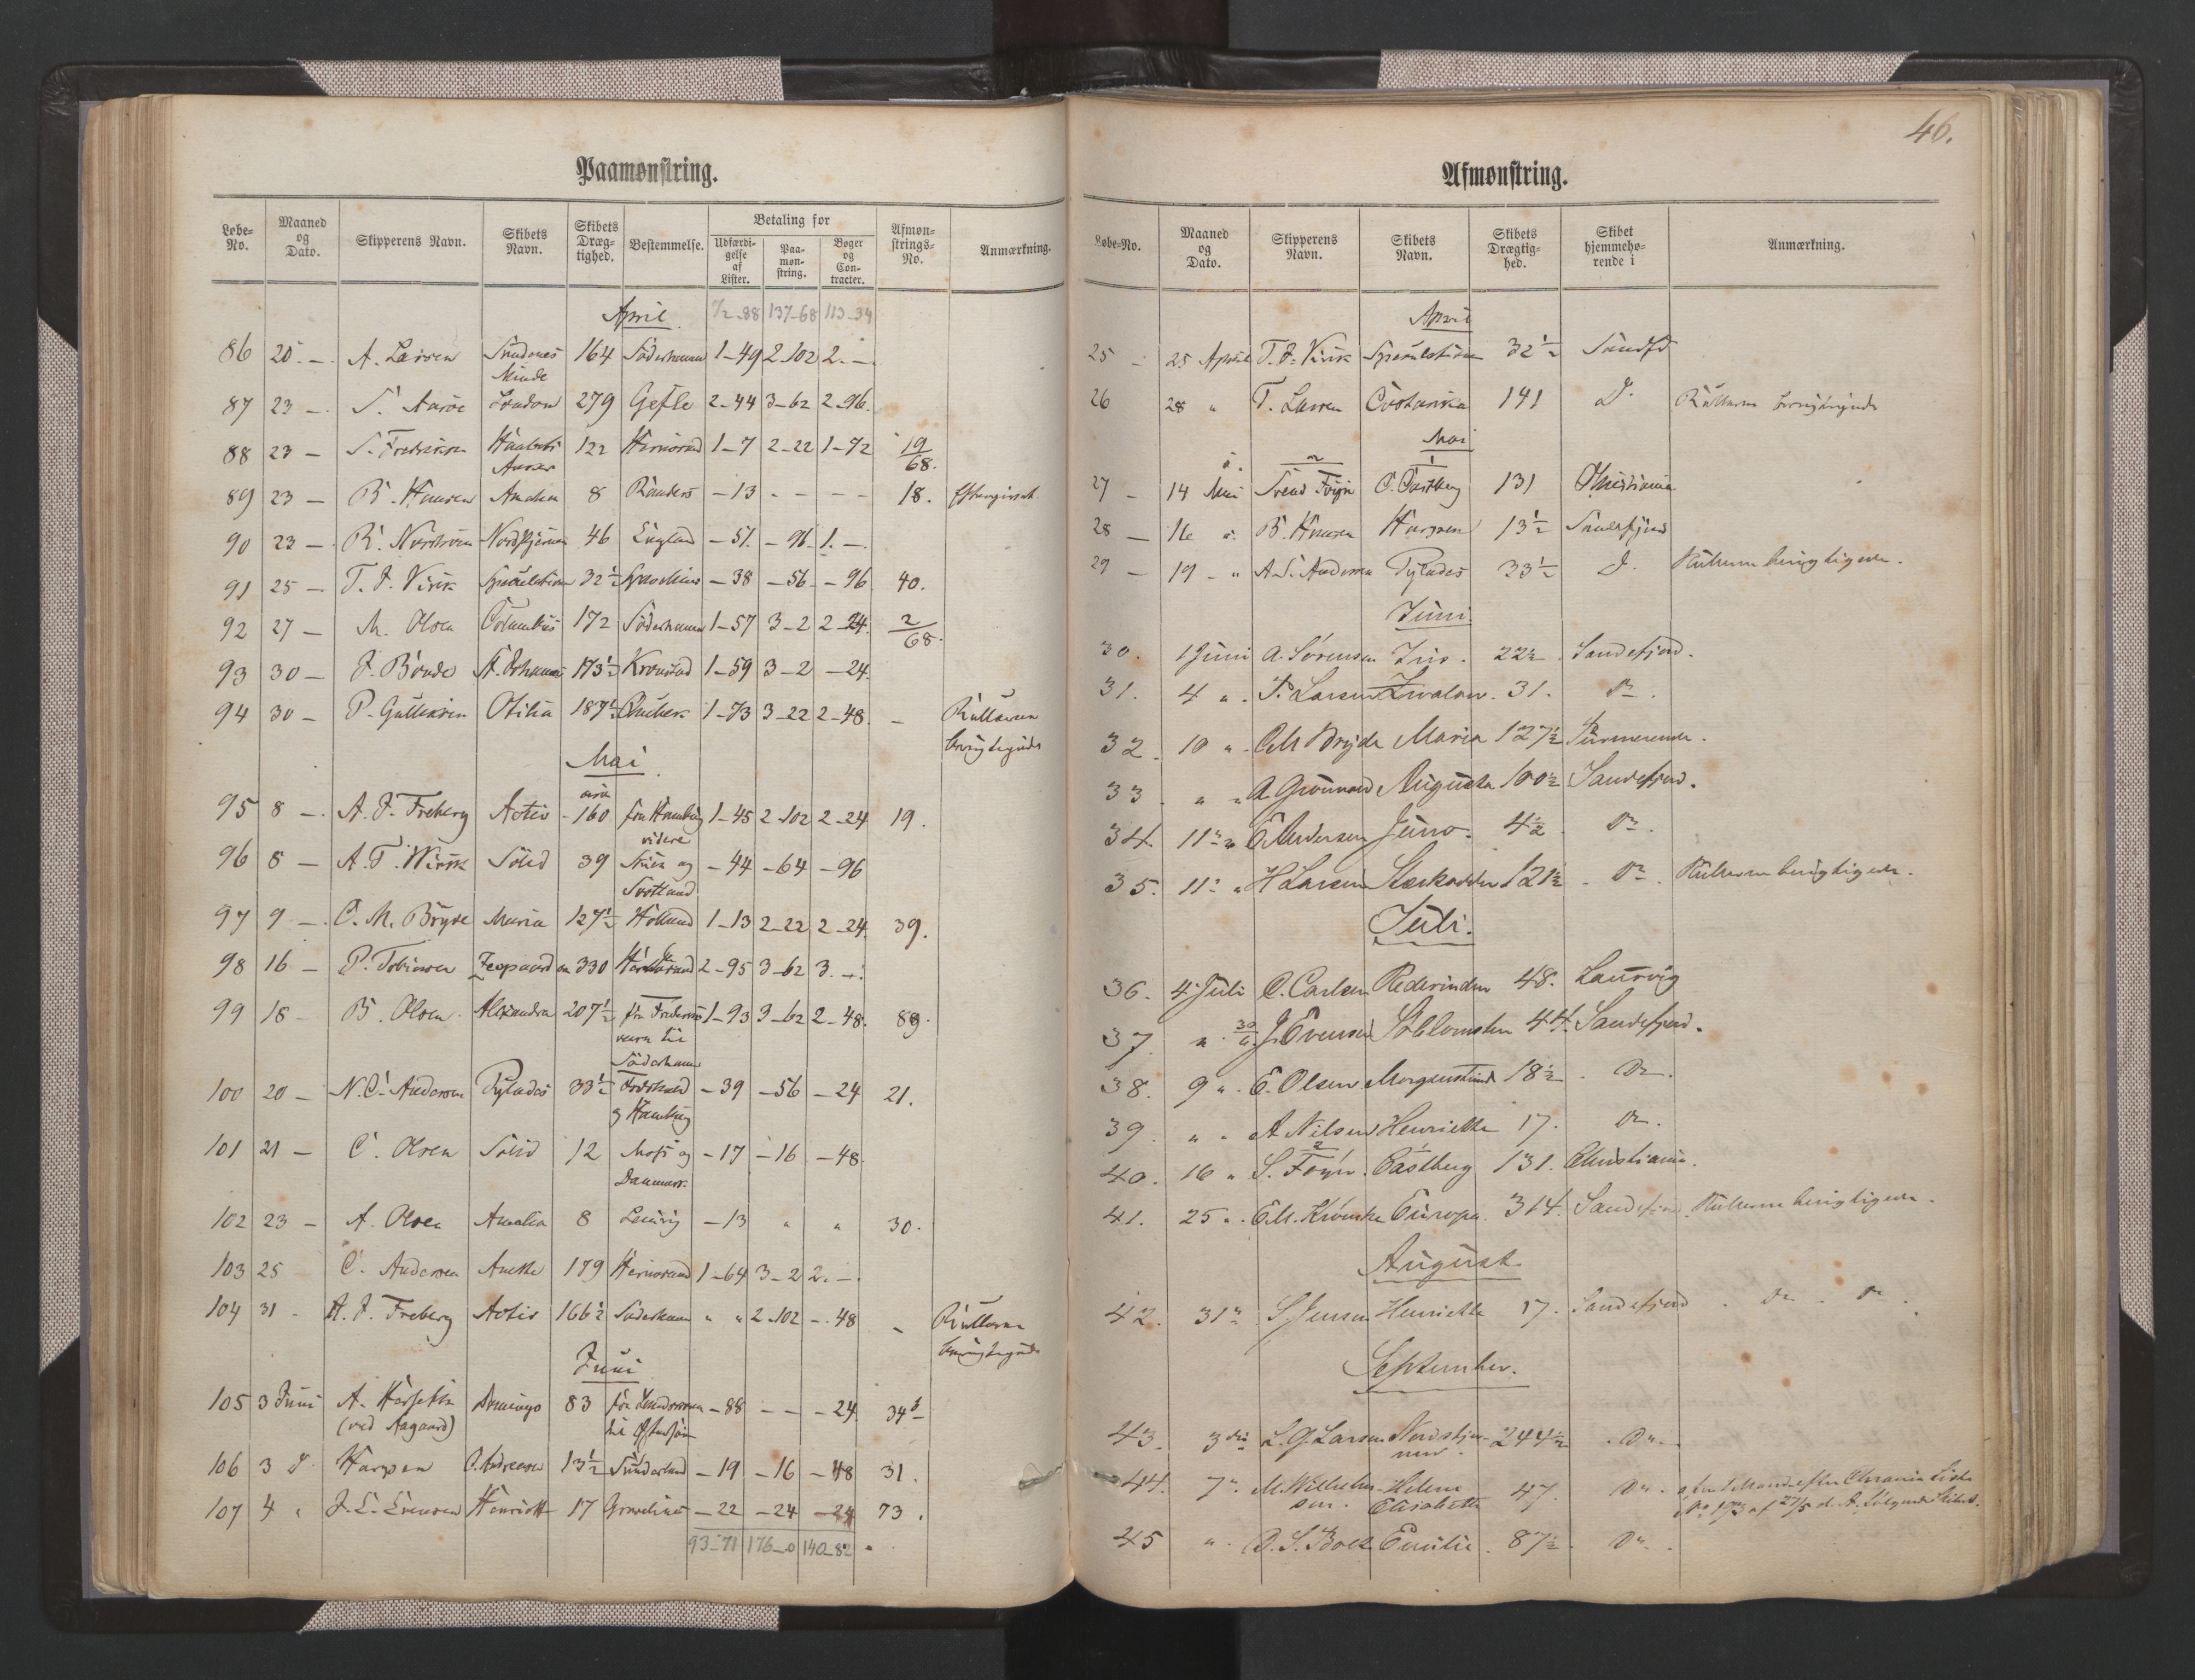 Paamønstring.
Løbe-No. Maaned og Dato. Skipperens Navn. Skibets Navn. Skibets Dræg-tighed. Bestemmelse. Betaling for Udfærdi-gelse af Lister. Paa-møn-string. Bøger og Con-tracter. Afmøn-strings-No. Anmærkning.
April 72-88 137-68 113-34
86 20 — A. Larsen Sandøes Minde 164 Söderhamn 1-49 2-102 2.—
87 23 — S. Aarøe London 279 Gefle 2-44 3-62 2-96.
88 23 — S. Fredriksen Haabets Anker 122 Hernösand 1-7 2-22 1-72 19/68.
89 23 — B. Hansen Amalia 8 Randers -13 - - - - 18.
90 23 — Nordstjernen 46 England -51. -96. 1.—
91 25 — T. J. Virik Speculation 32½ -38 -56 -96 40.
92 27 — M. Olsen Columbus 172 Söderhamn 1-57 3-2 2-24. 2/68.
93 30 — J. Bonde 173½ Kronstad 1-59 3-2 -24.
94 30 — P. Gulliksen Otilia 187½ 1-73 3-22 2-48. — Rullerne berigtigede
Mai
95 8 — A. J. Freberg Activ 160 fra Hamburg videre 1-45 2-102 2-24 19.
96 8 — A. T. Virik Solid 39 og Skotland -44 -64 -96
97 9 — C. M. Bryde Maria 127½ Holland 1-13 2-22 2-24. 39.
98 16 — P. Tobiassen Leopard 330 Hernösand 2-95 3-62 3.—
99 18 — B. Olsen Alexandra 207½ fra Frederiks værn til Söderhamn 1-93 3-62 2-48. 89.
100 20 — N. C. Andersen Pylades 33½ Fredrikshald og Hamburg -39 -56 -24 21.
101 21 — C. Olsen Solid 12 Moss og Danmark -17 -16 -48.
102 23 — A. Olsen Amalia 8 -13 " " 30.
103 25 C. Andersen Anette 179 Hernösand 1-64 3-2 2.—
104 31 A. J. Freberg Activ 166½ Söderhamn " " 2-102 -48 — Rullerne berigtigede
Juni
105 3 Juni A. (ved Aagaard) Domingo 83 til Østersøen -88 — — -24 34
106 3 d Hargsen 13½ Sunderland -19 -16 -48 31.
107 4 " J. E. Evensen Henriette 17 Gravelines -22 -24 -24 73.
93-71 176-0 140-82
46.
Afmønstring.
Løbe-No. Maaned og Dato. Skipperens Navn. Skibets Navn. Skibets Drægtig-hed. Skibet hjemmehø-rende i Anmærkning.
April
25 — 25 April T. J. Virik Speculation 32½ Sandfd
26 28 " T. Larsen 141 D. Rullerne berigtigede
Mai
27 — 14 Mai Svend Foyn C. Castberg 131 Christiania
28 — 16 " B. Hansen 13½ Sandefjord
29 — 19 — " Andersen Pylades 33½ D. Rullerne berigtigede.
Juni
30. 1 Juni A. Sørensen 22½ Sandefjord.
31. 4 " . Larsen Svalen. 31. Do.
32. 10 " . C M Bryde Maria 127½
33. " " A. Grønvold Augusta 100½ Sandefjord.
34. 11 " Andersen Juno. 4½ Do.
35. 11 " H Larsen Stærkodder 121½ Do. Rullerne berigtigede.
Juli.
36. 4 Juli C. Carlsen Rederinden 48. Laurvig
37. " J. Evensen 44. Sandefjord.
38. 9 " . E. Olsen Morgenstund 18½ Do.
39. " " A Nilsen Henriette 17. Do.
40. 16 " S. Foyn. Castberg 131. Christiania.
41. 25 " . Europa. 314. Sandefjord. Rullerne berigtigede.
August.
42. 31 S. Jensen Henriette 17. Sandefjord . Do . Do .
September.
43. 3die L. G. Larsen Nordstjernen 244½ . Do. .
44. 7 " M. Wilhelmsen. Helene Elisabeth 47. Do.
45 " . O. S. Boee Emilie . 87½ Do. .